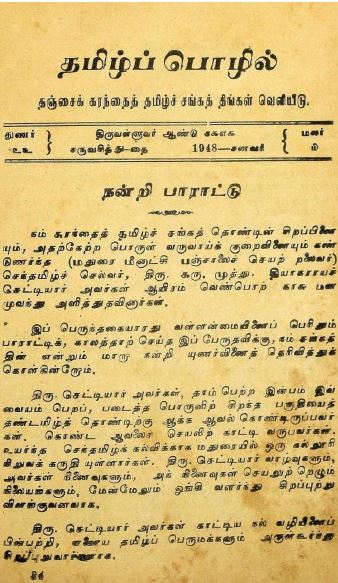 தமிழ்ப் பொழில்
தஞ்சைக் கரந்தைத் தமிழ்ச் சங்கத் திங்கள் வெளியீடு.
துணர் திருவள்ளுவர் ஆண்டு மலர்
சருவசித்து-தை 1948—சனவரி
நன்றி பாராட்டு
நம் கரந்தைத் தமிழ்ச் சங்கத் தொண்டின் சிறப்பினை
யும், அதற்கேற்ற பொருள் வருவாய்க் குறைவினையும் கண்
டுணர்ந்த (மதுரை மீனாட்சி பஞ்சாலைச் செயற் றலைவர்)
செந்தமிழ்ச் செல்வர், திரு. கரு. முத்து. தியாகராயச்
செட்டியார் அவர்கள் ஆயிரம் வெண்பொற் காசு மன
முவந்து அளித்துதவினார்கள்.
இப் பெருந்தகையாரது வள்ளன்மையினைப் பெரிதும்
பாராட்டிக், காலத்தாற் செய்த இப் பேருதவிக்கு, நம் சங்கத்
தின் என்றும் மாறா நன்றி யுணர்வினைத் தெரிவித்துக்
கொள்கின்றோம்.
திரு. செட்டியார் அவர்கள், தாம் பெற்ற இன்பம் இவ்
வையம் பெறப், படைத்த பொருளிற் சிறந்த பகுதியைத்
தண்டமிழ்த் தொண்டிற்கு ஆக்க ஆவல் கொண்டிருப்பவர்
கள். கொண்ட ஆவலைச் செயலிற் காட்டி வருபவர்கள்.
உயர்ந்த செந்தமிழ்க் கல்விக்காக மதுரையில் ஒரு கல்லூரி
நிறுவக் கருதி யுளளார்கள். திரு. செட்டியார் வாழ்வுகளும்,
அவர்கள் நினைவுகளும், அந் நினைவுகள் செயலுற் றெழும்
நிலையங்களும், மேன்மேலும் ஓங்கி வளர்ந்து சிறப்புற்று
விளங்குவனவாக.
திரு. செட்டியார் அவர்கள் காட்டிய நல் வழியினைப்
பின்பற்றி, ஏனைய தமிழ்ப் பெருமக்களும் அருளகூர்ந்து
சிறப்புறுவார்களாக.